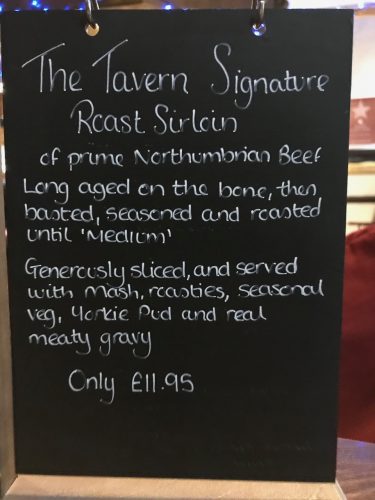 The Tavern Signature
Roast Sirloin
of prime Northumbrian Beef
Long aged on the bone, then
basted, seasoned and roasted
until 'Medium'
Generously sliced, and served
with mash, roasties, seasonal
veg, Yorkie Pud and real
meaty gravy
Only £11.95